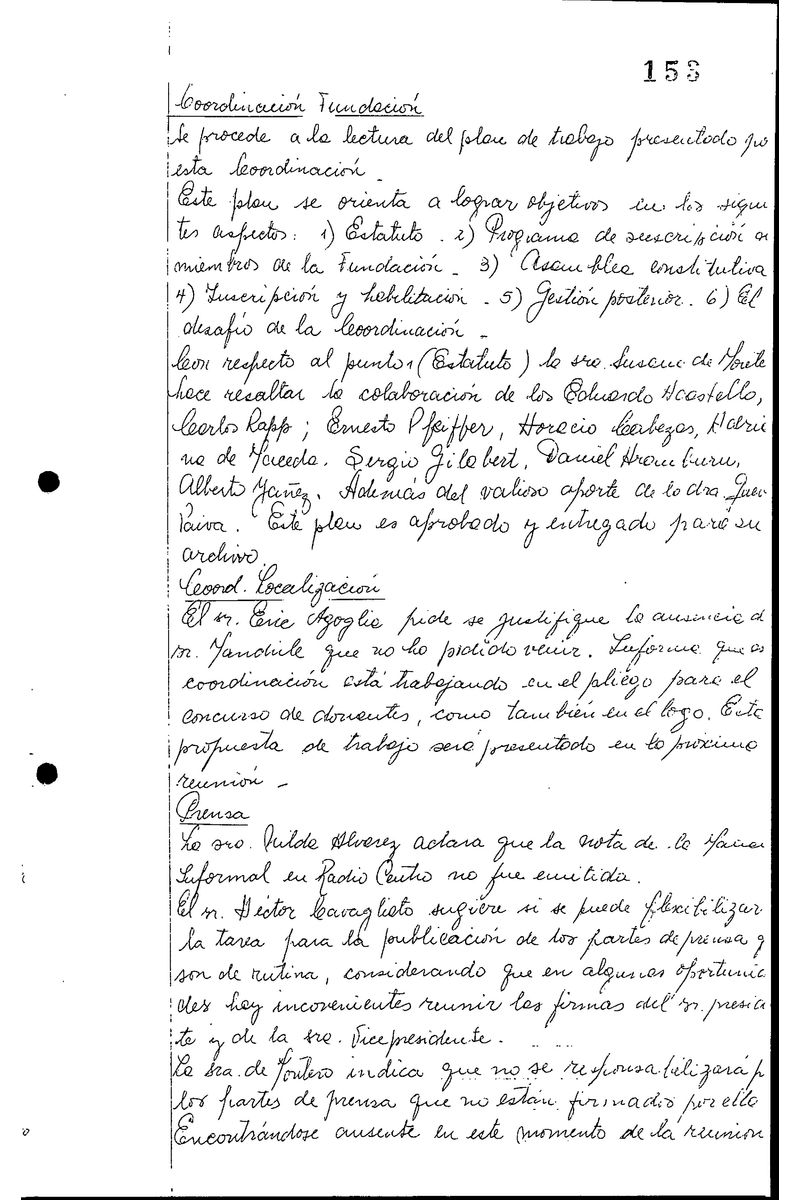 153
Coordinación Fundación
Se procede a la lectura del plan de trabajo presentado po
esta Coordinación.
Este plan se orienta a lograr objetivos en los siguien
tes aspectos: 1) Estatuto. 2) Programa de suscripción a
miembros de la Fundación. 3) Asamblea constitutiva
4) Inscripción y habilitación. 5) Gestión posterior. 6) El
desafío de la Coordinación.
Con respecto al punto 1 (Estatuto) la sra. Susana de
hace resaltar la colaboración de los Eduardo Acastello,
Carlos Rapp; Ernesto Pfeiffer, Horacio Cabezas, Adria
na de Maceda. Sergio Gilabert, Daniel Aramburu,
Alberto Yañez. Además del valioso aporte de la dra.
Paiva. Este plan es aprobado y entregado para su
archivo.
Coord. Localización
El sr. Eric Agoglia pide se justifique la ausencia d
sr. que no ha podido venir. Informa que es
coordinación está trabajando en el pliego para el
concurso de donantes, como también en el logo. Esta
propuesta de trabajo será presentado en la próxima
reunión -
Prensa
La sra. Nilda Alvarez aclara que la nota de la
Informal en Radio Centro no fue emitida.
El sr. Héctor Cavagliato sugiere si se puede flexibilizar
la tarea para la publicación de los partes de prensa q
son de rutina, considerando que en algunas oportunid
des hay incovenientes reunir las firmas del sr. preside
te y de la sra. Vicepresidente.
La sra. de Montero indica que no se responsabilizará p
los partes de prensa que no están firmados por ella
Encontrándose ausente en este momento de la reunión